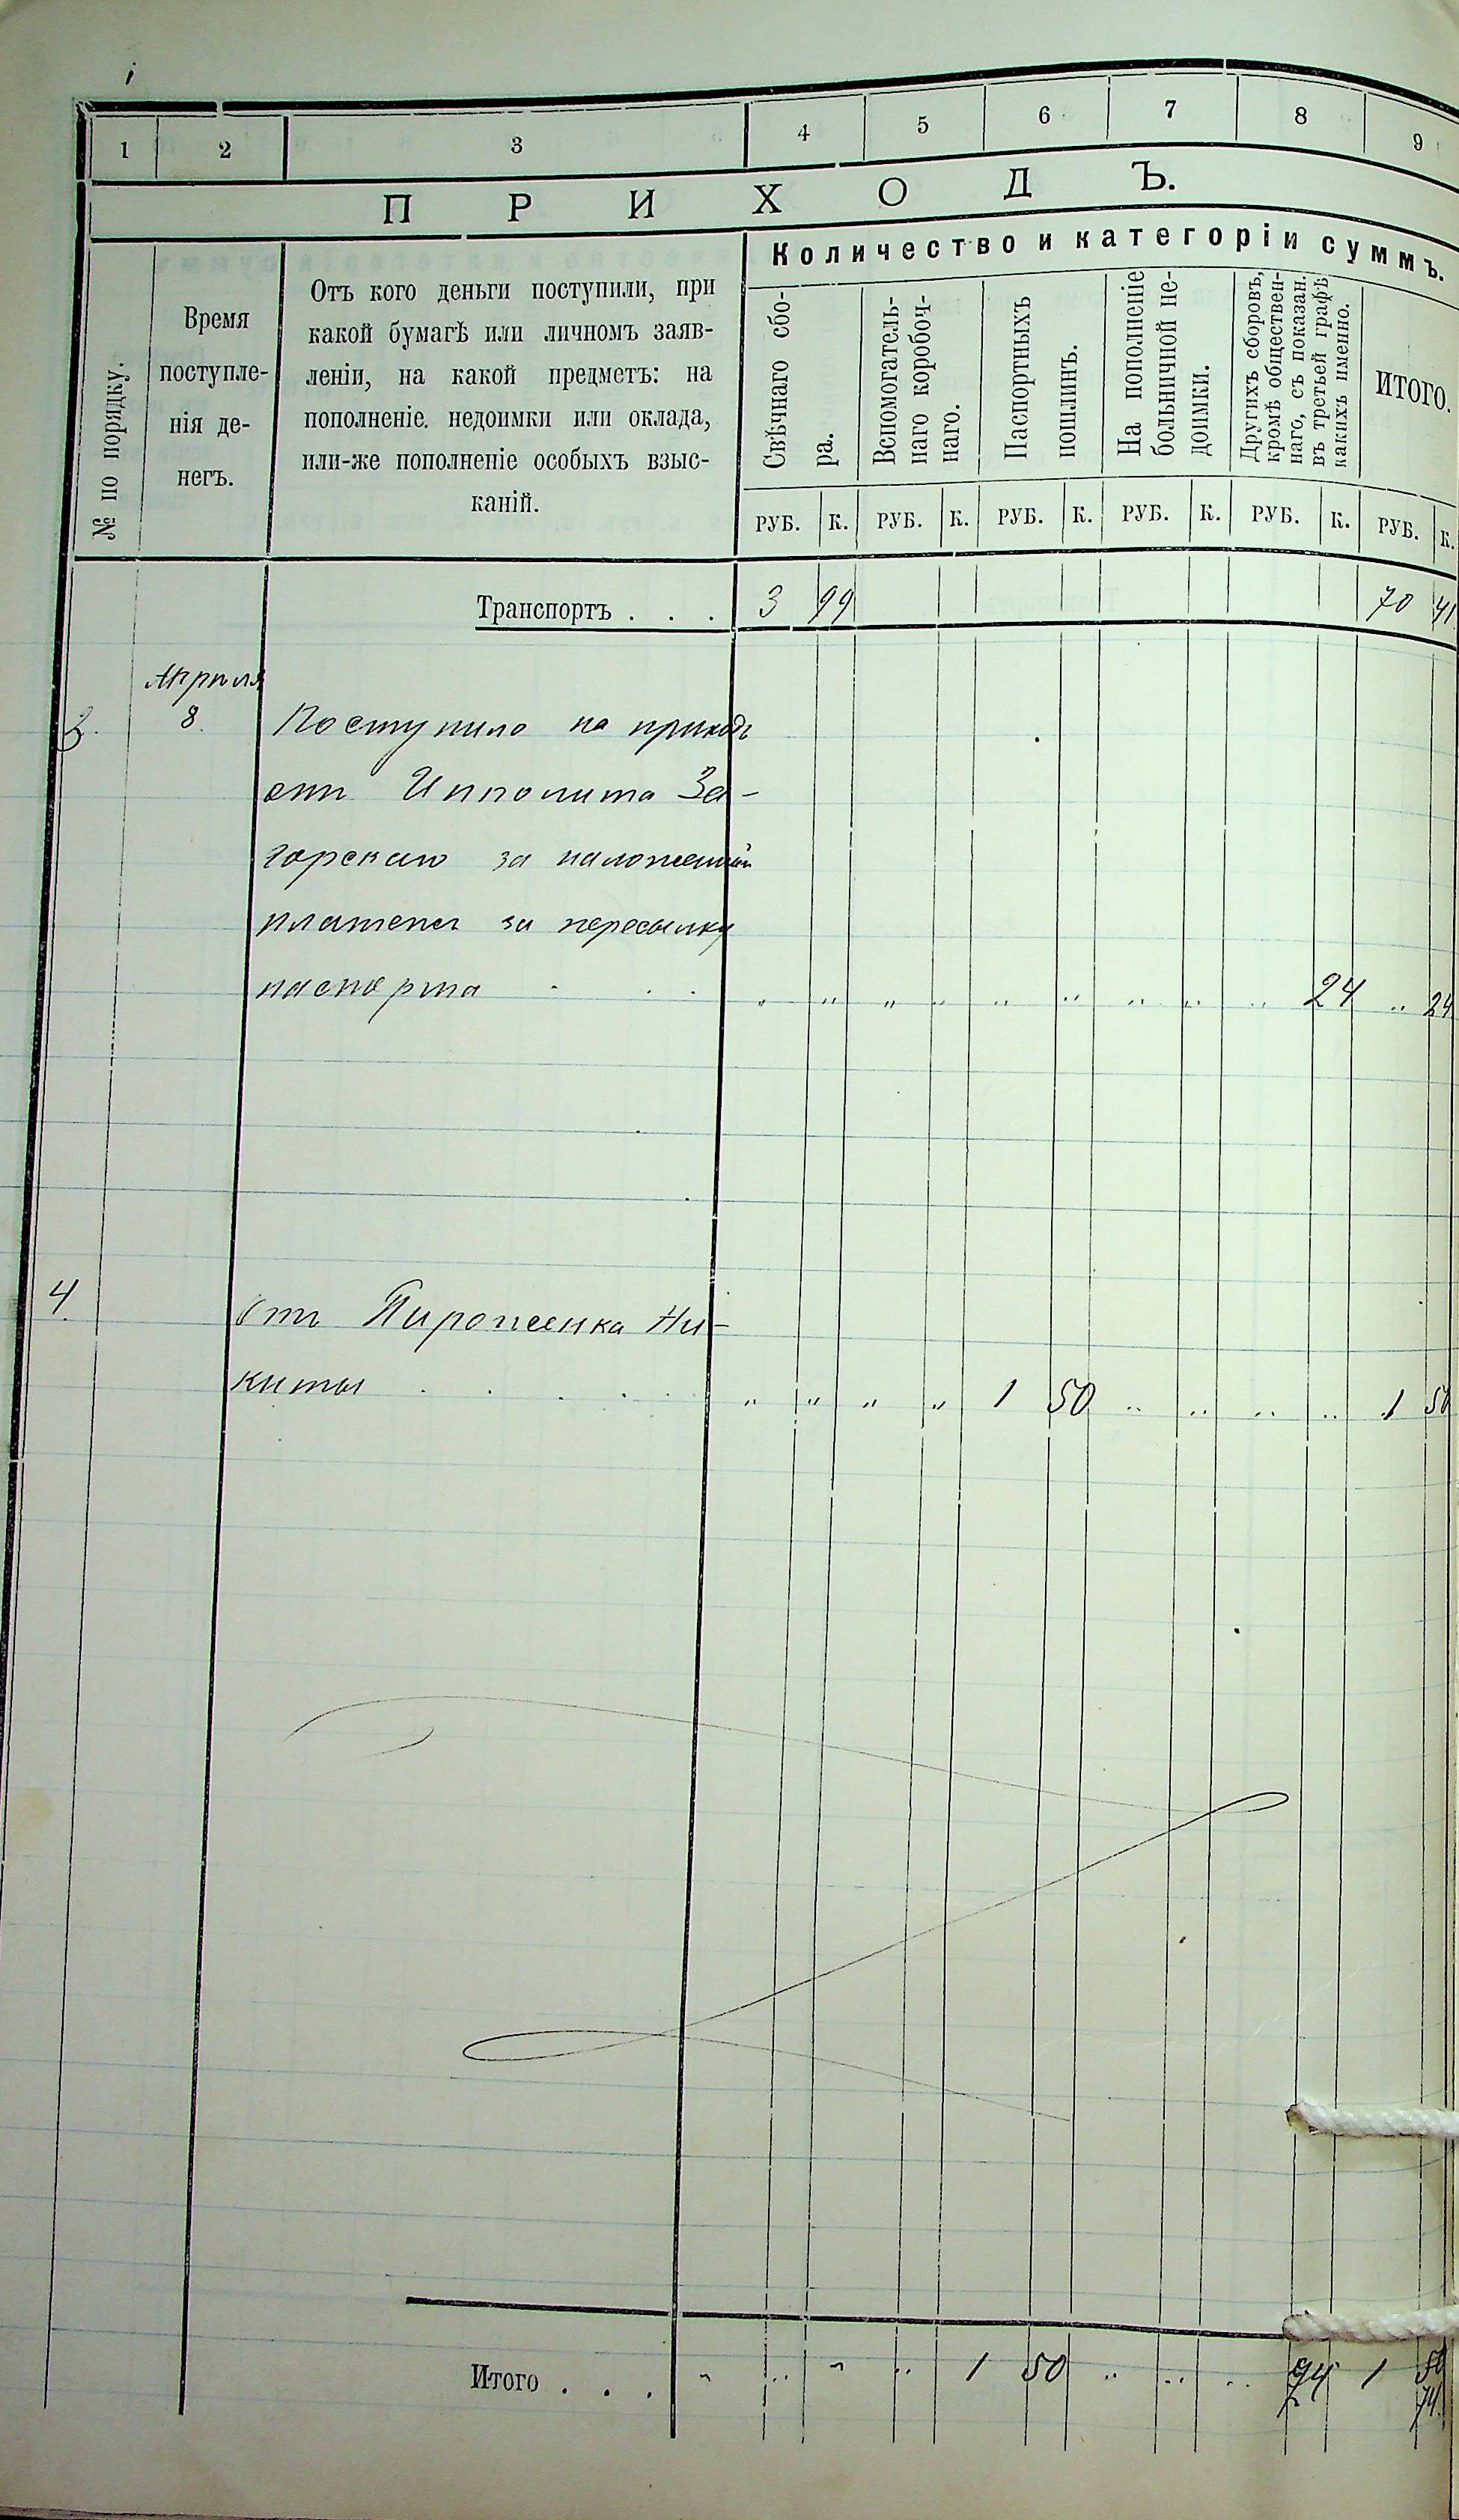 1 2 3 4 5 6 7 8 9
ПРИХОДЪ.
№ по порядку.
Время
поступле-
нія де-
негъ.
Отъ кого деньги поступили, при
какой бумагѣ или личномъ заяв-
леніи, на какой предметъ: на
пополненіе. недоимки или оклада,
или-же пополненіе особыхъ взыс-
каній.
Количество и категоріи суммъ.
Свѣчнаго сбо-
ра.
Вспомогатель-
наго коробоч-
наго.
Паспортныхъ
пошлинъ.
На пополненіе
больничной не-
доимки.
Другихъ сборовъ,
кромѣ обществен-
наго, съ показан.
въ третьей графѣ
какихъ именно.
ИТОГО.
РУБ. К. РУБ. К. РУБ. К. РУБ. К. РУБ. К. РУБ. К.
Транспортъ . . . 3 99 70 41
Апрѣля
3. 8. Поступило на приходъ
отъ Ипполита За-
горскаго за наложенный
платежъ за пересылку
паспорта . . . „ „ „ „ „ „ „ „ „ 24 „ 24
4. Отъ Пироженка Ни-
киты . . . . . „ „ „ „ 1 50 „ „ „ „ 1 50
Итого . . . „ „ „ „ 1 50 „ „ „ 24 1 74